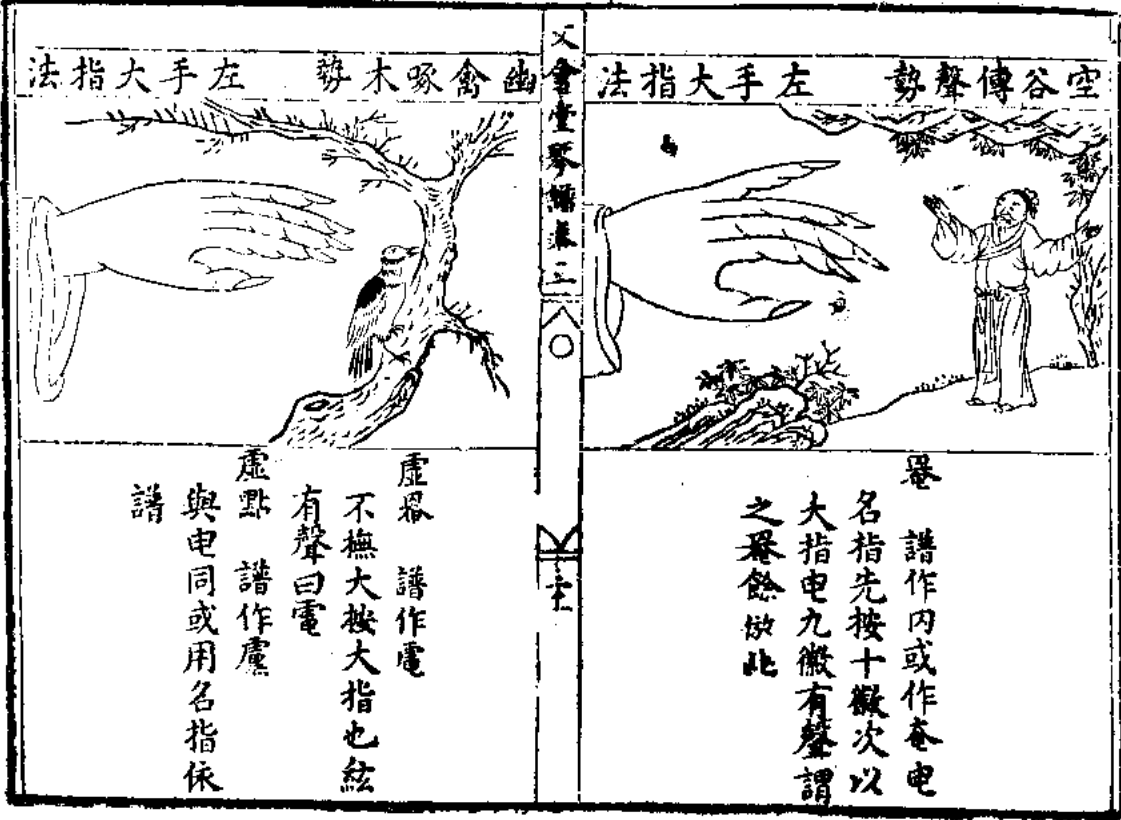 空谷傳聲勢 左手大指法
罨 譜作內或作奄电
名指先按十徽次以
大指电九徽有聲謂
之罨餘倣此
文會堂琴譜卷二
幽禽啄木勢 左手大指法
虛罨 譜作
不撫大按大指也絃
有聲曰
虛點 譜作
與电同或用名指依
譜